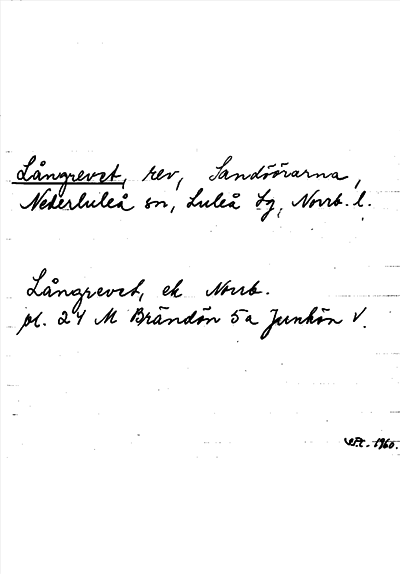 Långrevet, rev, Sandöörarna,
Nederluleå sn, Luleå tg, Norrb. l.
Långrevet, ek Norrb.
pl. 24 M Brändön 5a Junkön V.
1960.